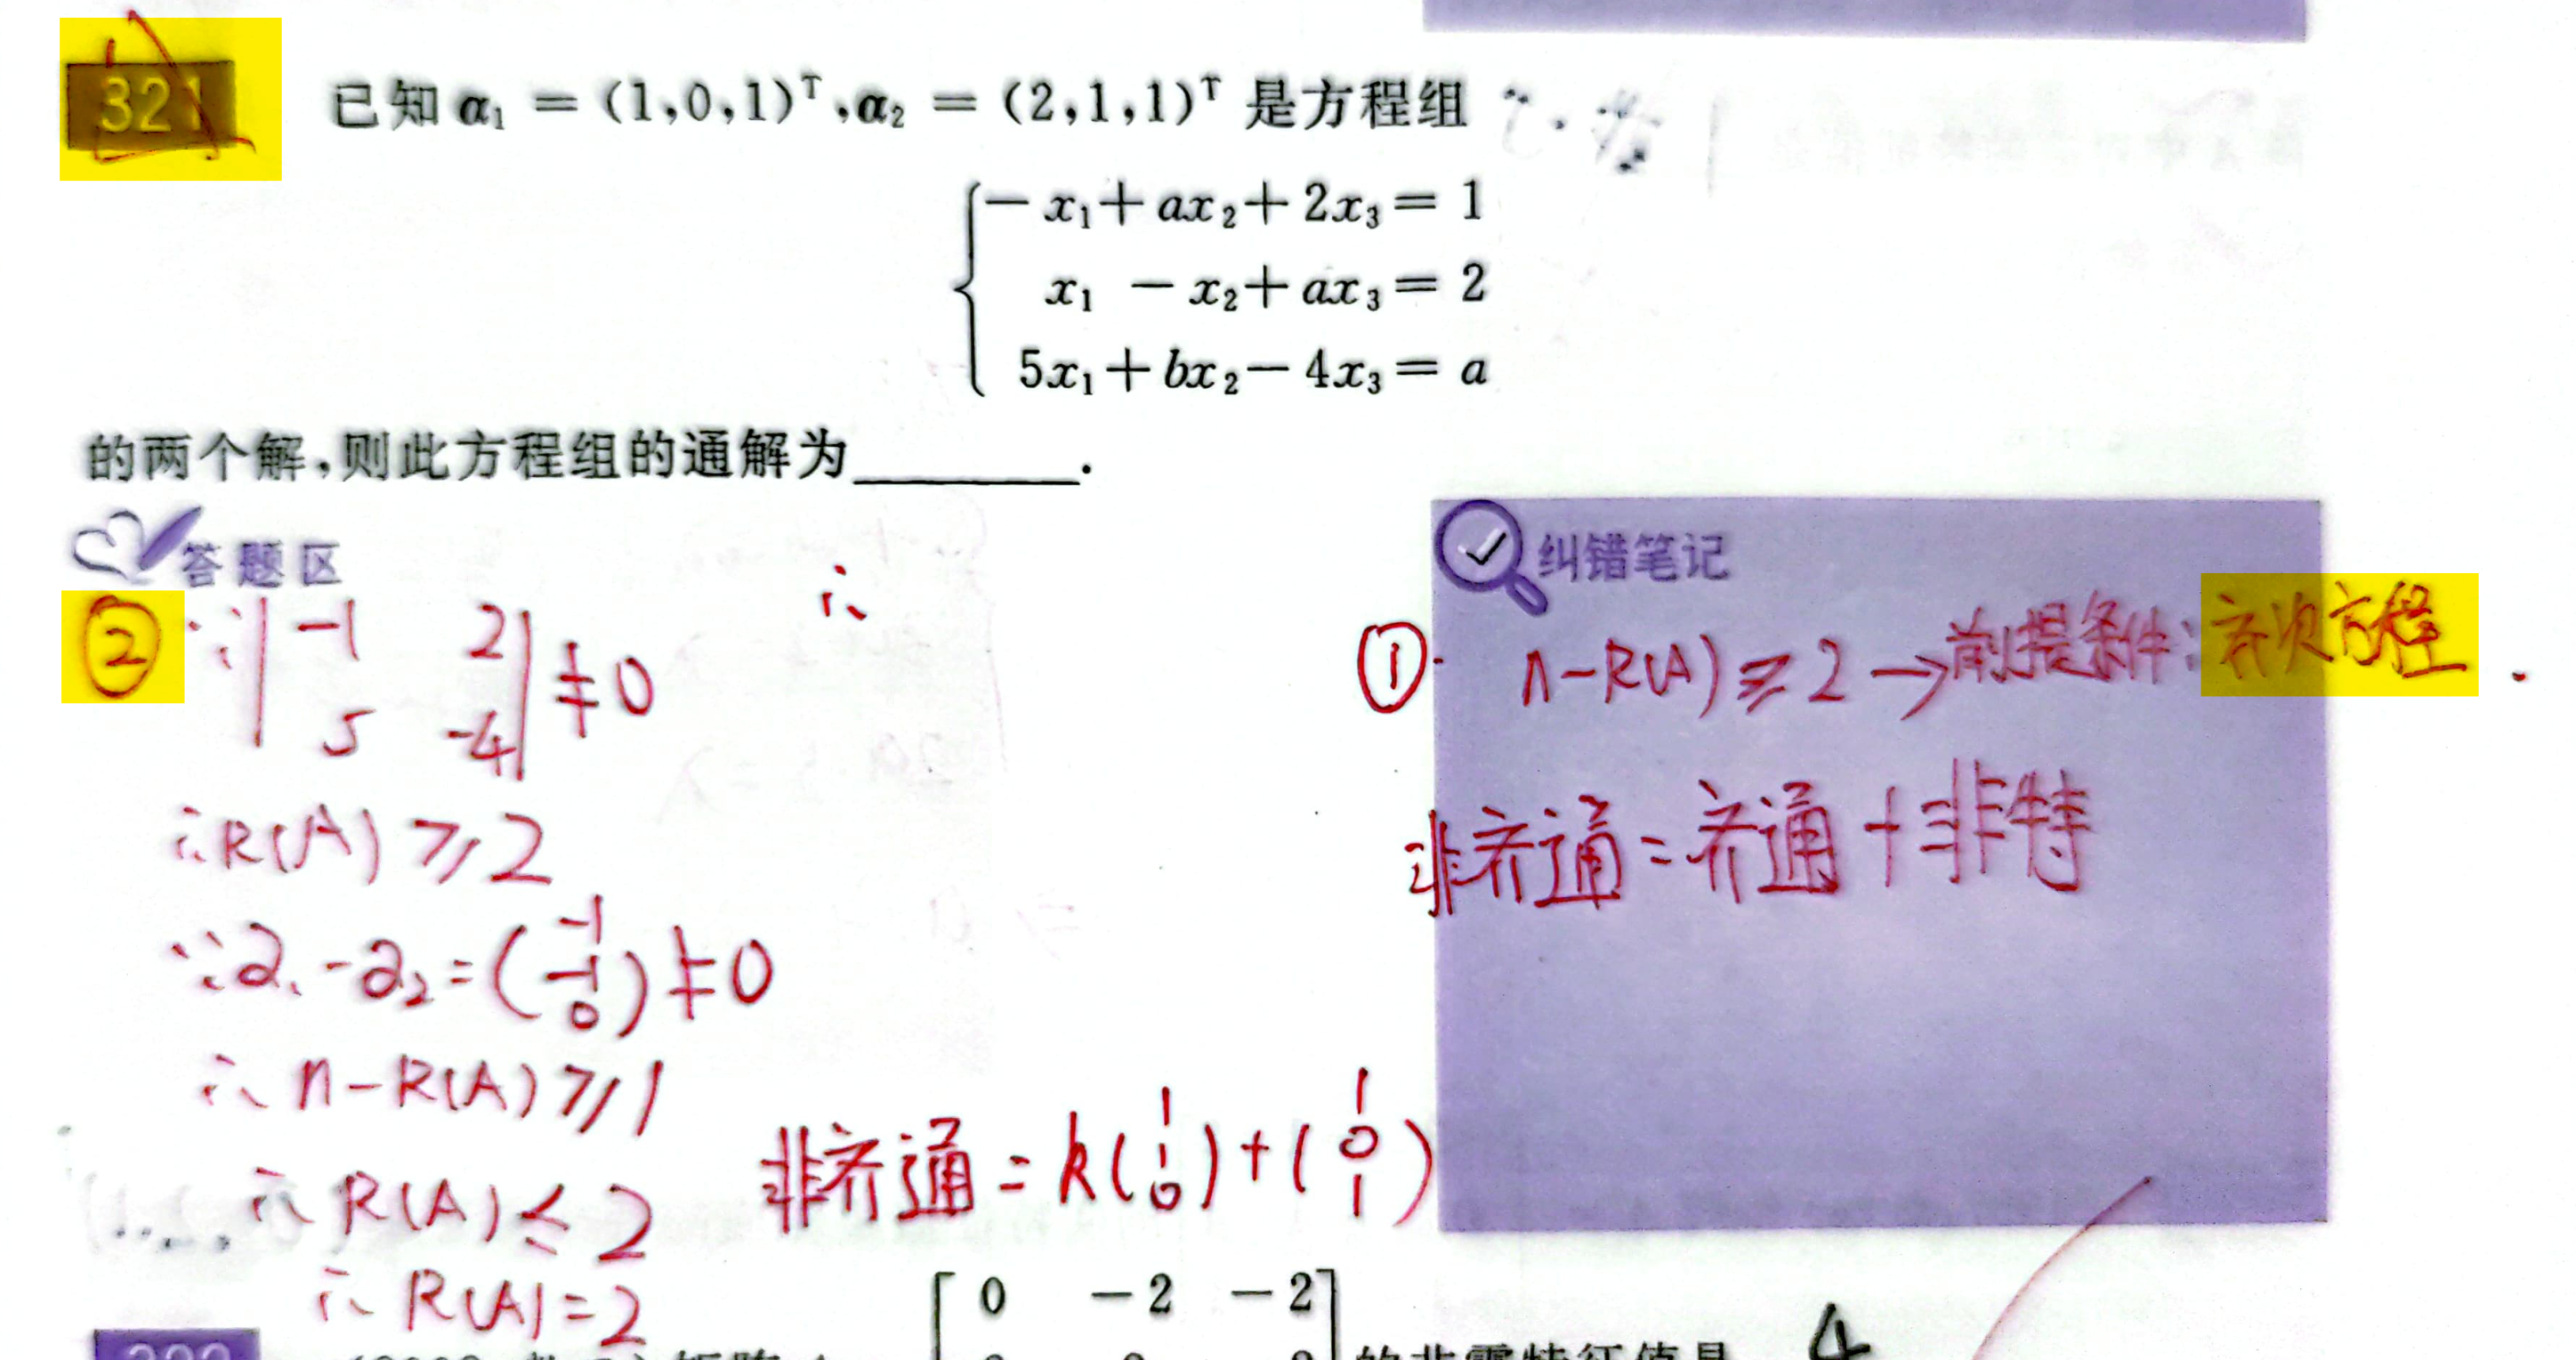 321 已知 α₁ = (1,0,1)ᵀ,α₂ = (2,1,1)ᵀ 是方程组
− x₁ + ax₂ + 2x₃ = 1
x₁ − x₂ + ax₃ = 2
5x₁ + bx₂ − 4x₃ = a
的两个解,则此方程组的通解为________.
答题区
② ∵ | −1 2 |
| 5 -4 | ≠ 0
∴ R(A) ≥ 2
∵ α₁ - α₂ = ( -1 -1 0 ) ≠ 0
∴ n - R(A) ≥ 1
∴ R(A) ≤ 2
∴ R(A) = 2
∴
非齐通 = k( 1 1 0 ) + ( 1 0 1 )
纠错笔记
① n - R(A) ≥ 2 → 前提条件: 齐次方程.
非齐通 = 齐通 + 非特
0 −2 −2
的非零特征值是 4